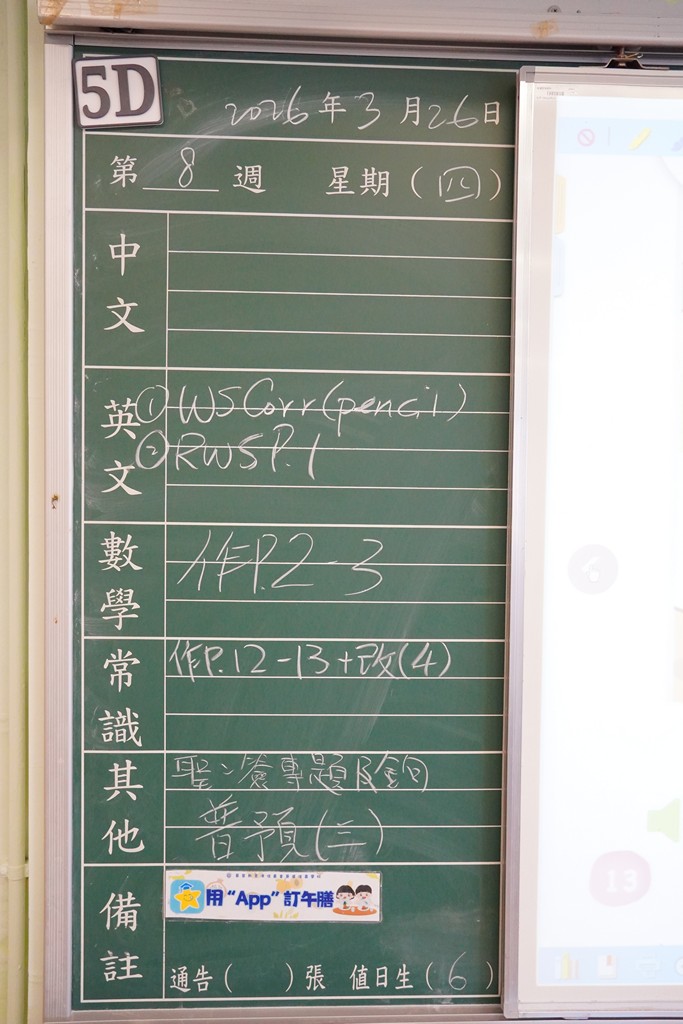 5D
2026年3月26日
第 8 週 星期(四)
中文
英文
① WS Corr (pencil)
② RWS P.1
數學
作P.2-3
常識
作P.12-13+改(4)
其他
普預(三)
備註
用“App”訂午膳
通告( )張 值日生(6)
13